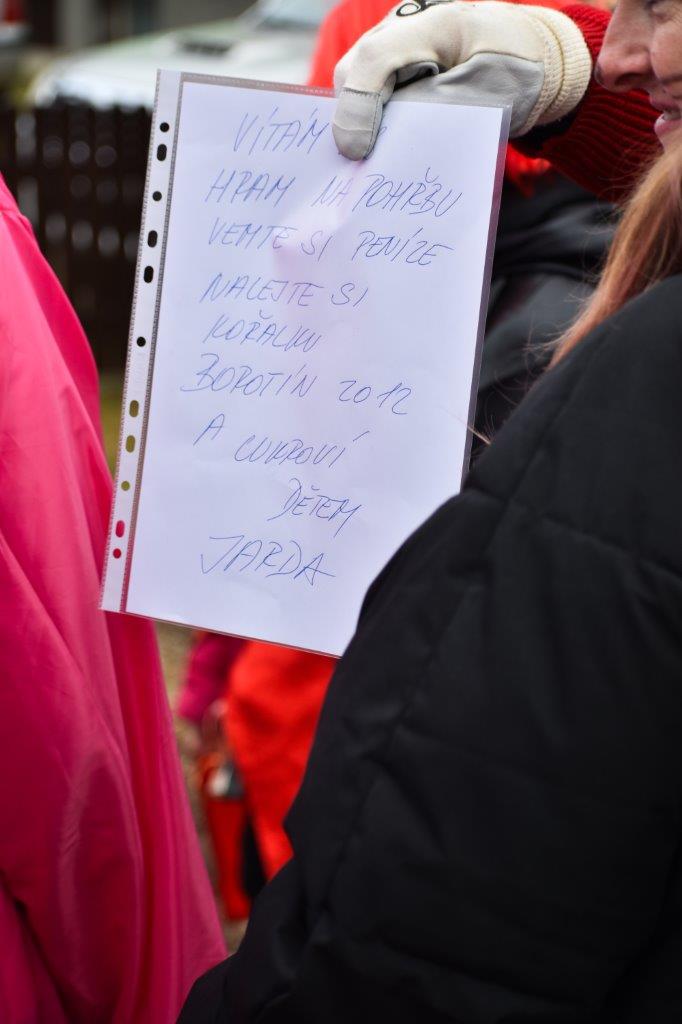 VÍTÁM
HRAM NA POHŘBU
VEMTE SI PENÍZE
NALEJTE SI
KOŘALKU
BOROTÍN 2012
A CUKROVÍ
DĚTEM
JARDA